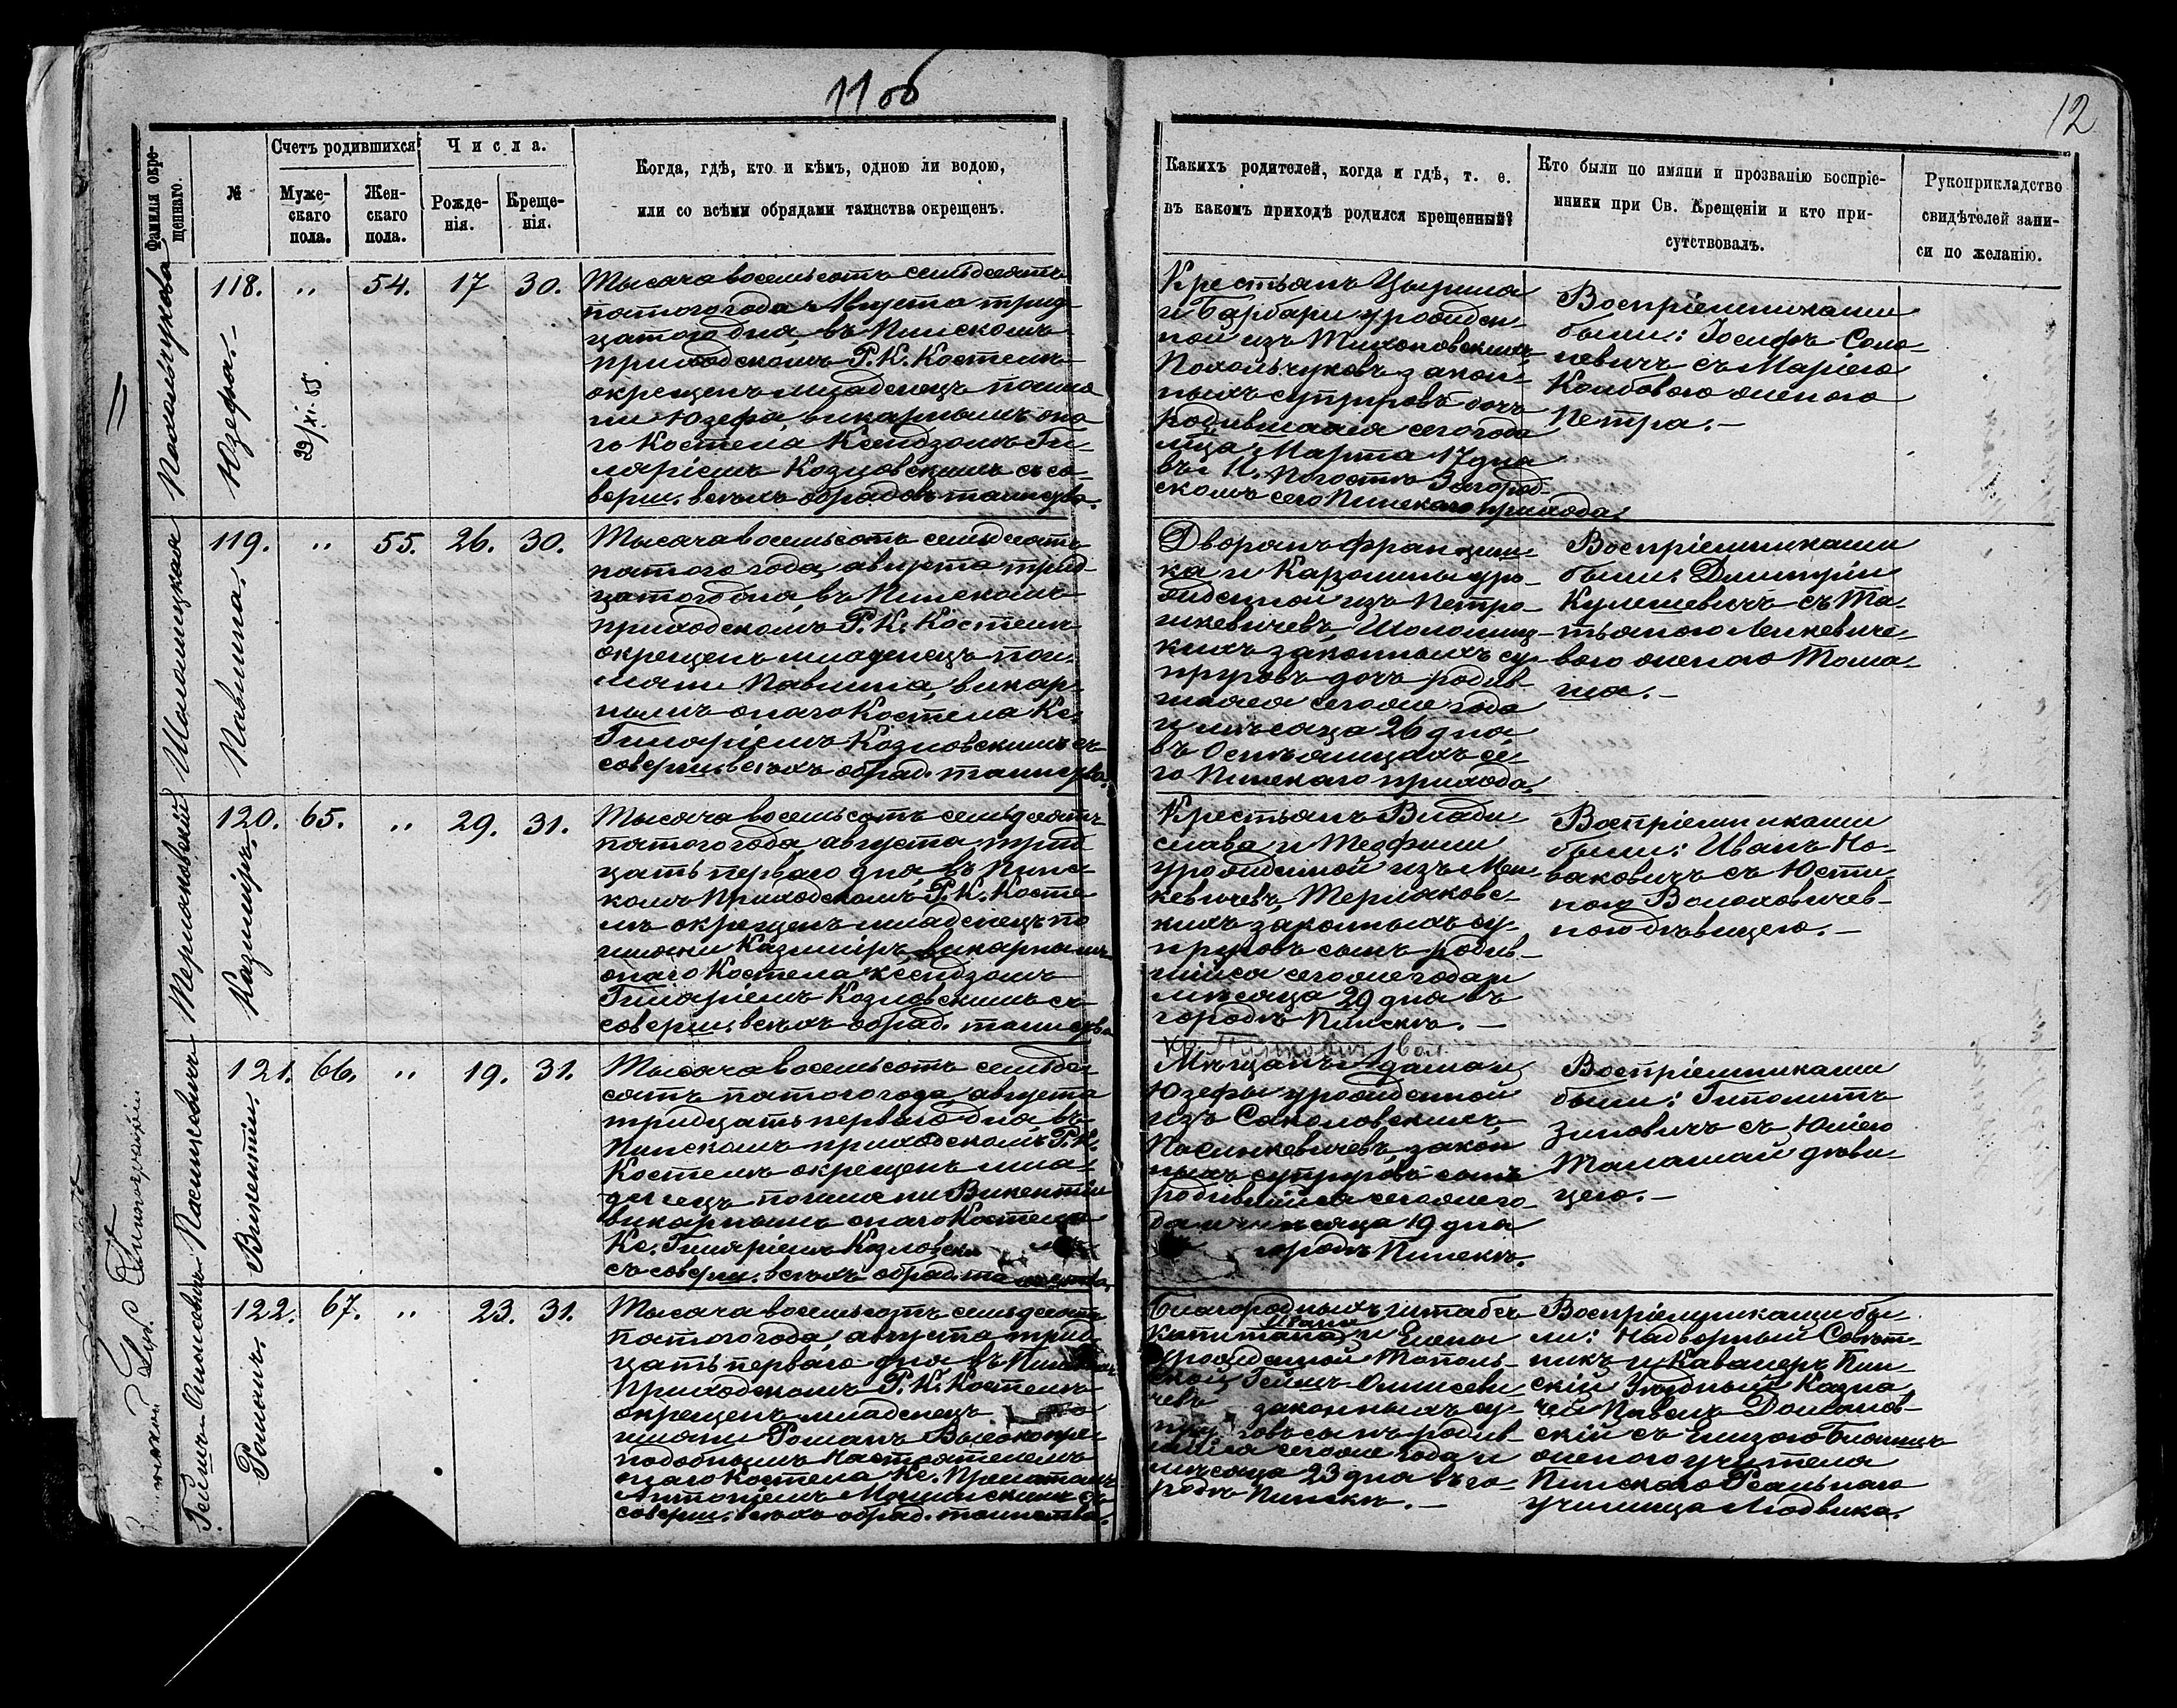 11 об
12
Фамилія окре-
щеннаго.
№
Счетъ родившихся
Муже-
скаго
пола.
Жен-
скаго
пола.
Числа.
Рожде-
нія.
Креще-
нія.
Когда, гдѣ, кто и кѣмъ, одною ли водою,
или со всѣми обрядами таинства окрещенъ.
Какихъ родителей, когда и гдѣ, т. е.
въ какомъ приходѣ родился крещенный?
Кто были по имяни и прозванію воспріе-
мники при Св. Крещеніи и кто при-
сутствовалъ.
Рукоприкладство
свидѣтелей запи-
си по желанію.
Похольчукова
Юзефа.-
118. " 54. 17 30.
29/XI. 55
Тысяча восемьсотъ семьдесятъ
пятого года Августа трид-
цатого дня, въ Пинскомъ
приходскомъ Р. К. Костелѣ
окрещенъ младенецъ по имя
ни Юзефа, викарнымъ она-
го Костела Ксендзомъ Ги-
ляріемъ Козловскимъ съ со-
верш. всѣхъ обрядовъ таинства.
Крестьянъ Цыприна
и Барбары урожден-
ной изъ Тихоновскихъ
Похольчуковъ закон-
ныхъ супруговъ дочь
родившаяся сего года
мца Марта 17 дня
въ И. Погостѣ Загород-
скомъ сего Пинскаго прихода.
Воспріемниками
были: Іосифъ Соло-
невичъ съ Маріею
Колбовою женою
Петра.-
Шоломицкая
Павлина.
119. " 55. 26. 30.
Тысяча восемьсотъ семьдесятъ
пятого года, августа трид-
цатого дня, въ Пинскомъ
приходскомъ Р. К. Костелѣ
окрещенъ младенецъ по и-
мяни Павлина, викар-
нымъ онаго Костела Кс.
Гиляріемъ Козловскимъ съ
соверш. всѣхъ обряд. таинства.
Дворянъ Францишка
ка и Каролины уро-
жденной изъ Петра-
шкевичевъ, Шоломиц-
кихъ законныхъ су-
пруговъ дочь родив
шаяся сего же года
и мѣсяца 26 дня
въ Осняжицахъ се-
го Пинскаго прихода.
Воспріемниками
были: Дмитрій
Кулешевичъ съ Та-
тьяною Ленкевиче-
вою женою Тома-
ша.-
Терлиховскій
Казиміръ.
120. 65. " 29. 31.
Тысяча восемьсотъ семьдесятъ
пятого года, августа трид
цать перваго дня, въ Пинс-
комъ Приходскомъ Р. К. Косте
лѣ окрещенъ младенецъ по
имяни Казиміръ, викарнымъ
онаго Костела ксендзомъ
Гиляріемъ Козловскимъ съ
соверш. всѣхъ обряд. таинства
Крестьянъ Влади-
слава и Теофили
урожденной изъ Мен-
кевичевъ, Терляковс-
кихъ законныхъ су-
пруговъ сынъ родив-
шійся сего же года и
мѣсяца 29 дня въ
городѣ Пинскѣ.-
Воспріемниками
были: Иванъ Но-
ваковичъ съ Юсти-
ною Волоховичев-
ною дѣвицею.-
Пасинкевичъ
Викентій.
121. 66. " 19. 31.
Тысяча восемьсотъ семьде-
сятъ пятого года, августа
тридцать перваго дня въ
Пинскомъ приходскомъ Р. К.
Костелѣ окрещенъ мла-
денецъ по имяни Викентій
викарнымъ онаго Костела
Кс. Гиляріемъ Козловски мъ
съ соверш. всѣхъ обряд. таинства.
Мѣщанъ Адама и
Юзефы урожденной
изъ Соколовскихъ,
Пасинкевичевъ, закон
ныхъ супруговъ сынъ
родившійся сего же го-
да и мѣсяца 19 дня
городѣ Пинскѣ.
Воспріемниками
были: Гиполитъ
Зиновичъ съ Юліею
Таламай дѣви-
цею.-
Романъ.
122. 67. " 23. 31.
Тысяча восемьсотъ семьдесятъ
пятого года, августа трид-
цать перваго дня въ Пинскомъ
Приходскомъ Р. К. Костелѣ
окрещенъ младенецъ по
имяни Романъ Высокопре-
подобнымъ Настоятелемъ
онаго Костела Кс. Прелатомъ
Антоніемъ Мошинскимъ съ
соверш. всѣхъ обряд. таинства.
Благородныхъ штабсъ
капитана Ивана и Елены
урожденной Тополь-
ской, Гейшъ-Олисеви-
чевъ законныхъ су-
пруговъ сынъ родив-
шійся сего же года и
мѣсяца 23 дня въ го-
родѣ Пинскѣ.-
Воспріемниками бы-
ли: Надворный Совѣт-
никъ и Кавалеръ Пин-
скій Уѣздный Казна-
чей Павелъ Домонов-
скій съ Елизою
женою учителя
Пинскаго Реальнаго
училища Людвика.